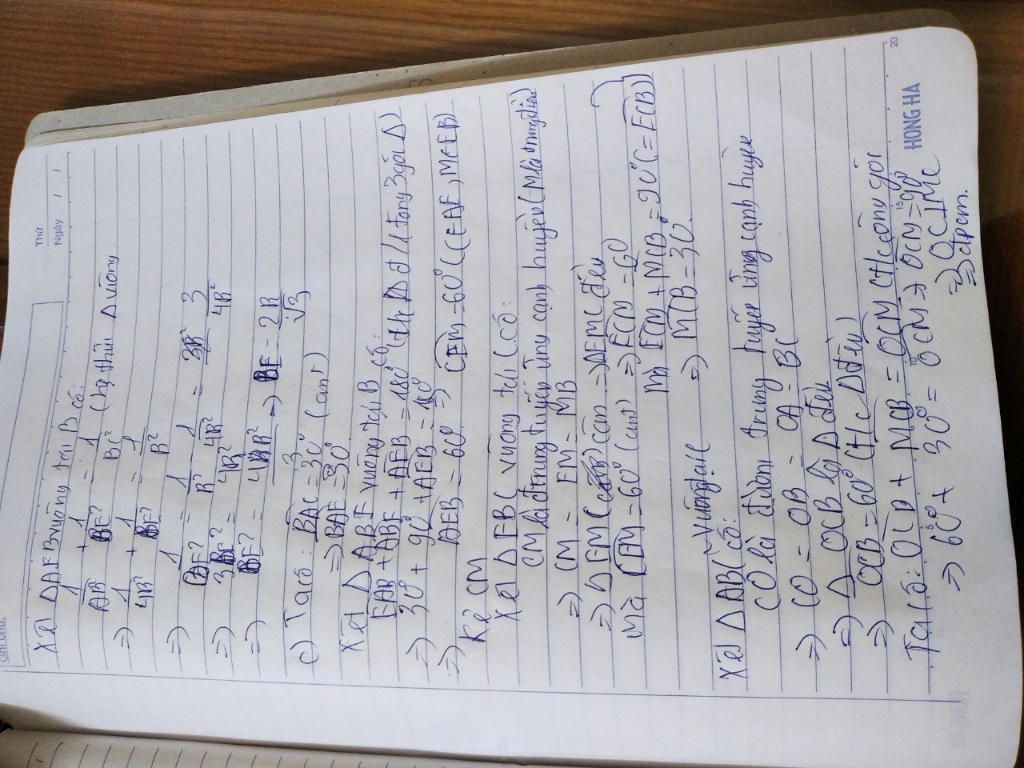 Thứ
Ngày / /
Xét ΔAEB vuông tại B có:
1/AB² + 1/BE² = 1/BC² (hệ thức Δ vuông
=> 1/4R² + 1/BE² = 1/R²
=> 1/BE² = 1/R² - 1/4R² = 3/4R²
=> 3BE² = 4R²
=> BE² = 4R²/3 => BE = 2R/√3
c) Ta có: BAC = 30° (cmt)
=> BAE = 30°
Xét ΔABE vuông tại B có:
EAB + ABE + AEB = 180° (đ/l tổng 3 góc Δ)
=> 30° + 90° + AEB = 180°
=> AEB = 60° => CEM = 60° (C∈AE, M∈EB)
Kẻ CM
Xét ΔEBC vuông tại C có:
CM là đ trung tuyến ứng cạnh huyền (M là trung điểm)
=> CM = EM = MB
=> ΔEMC cân => ΔEMC đều
mà CEM = 60° (cmt) => ECM = 60
mà ECM + MCB = 90° (= ECB)
=> MCB = 30°
Xét ΔABC vuông tại C có:
CO là đường trung tuyến ứng cạnh huyền
=> CO = OB = OA = BC
=> Δ OCB là Δ đều
=> OCB = 60° (t/c Δ đều)
Ta có: OCB + MCB = OCM (t/c cộng góc)
=> 60° + 30° = OCM => OCM = 90°
=> OC⊥MC
=> đpcm.
HONG HA
20